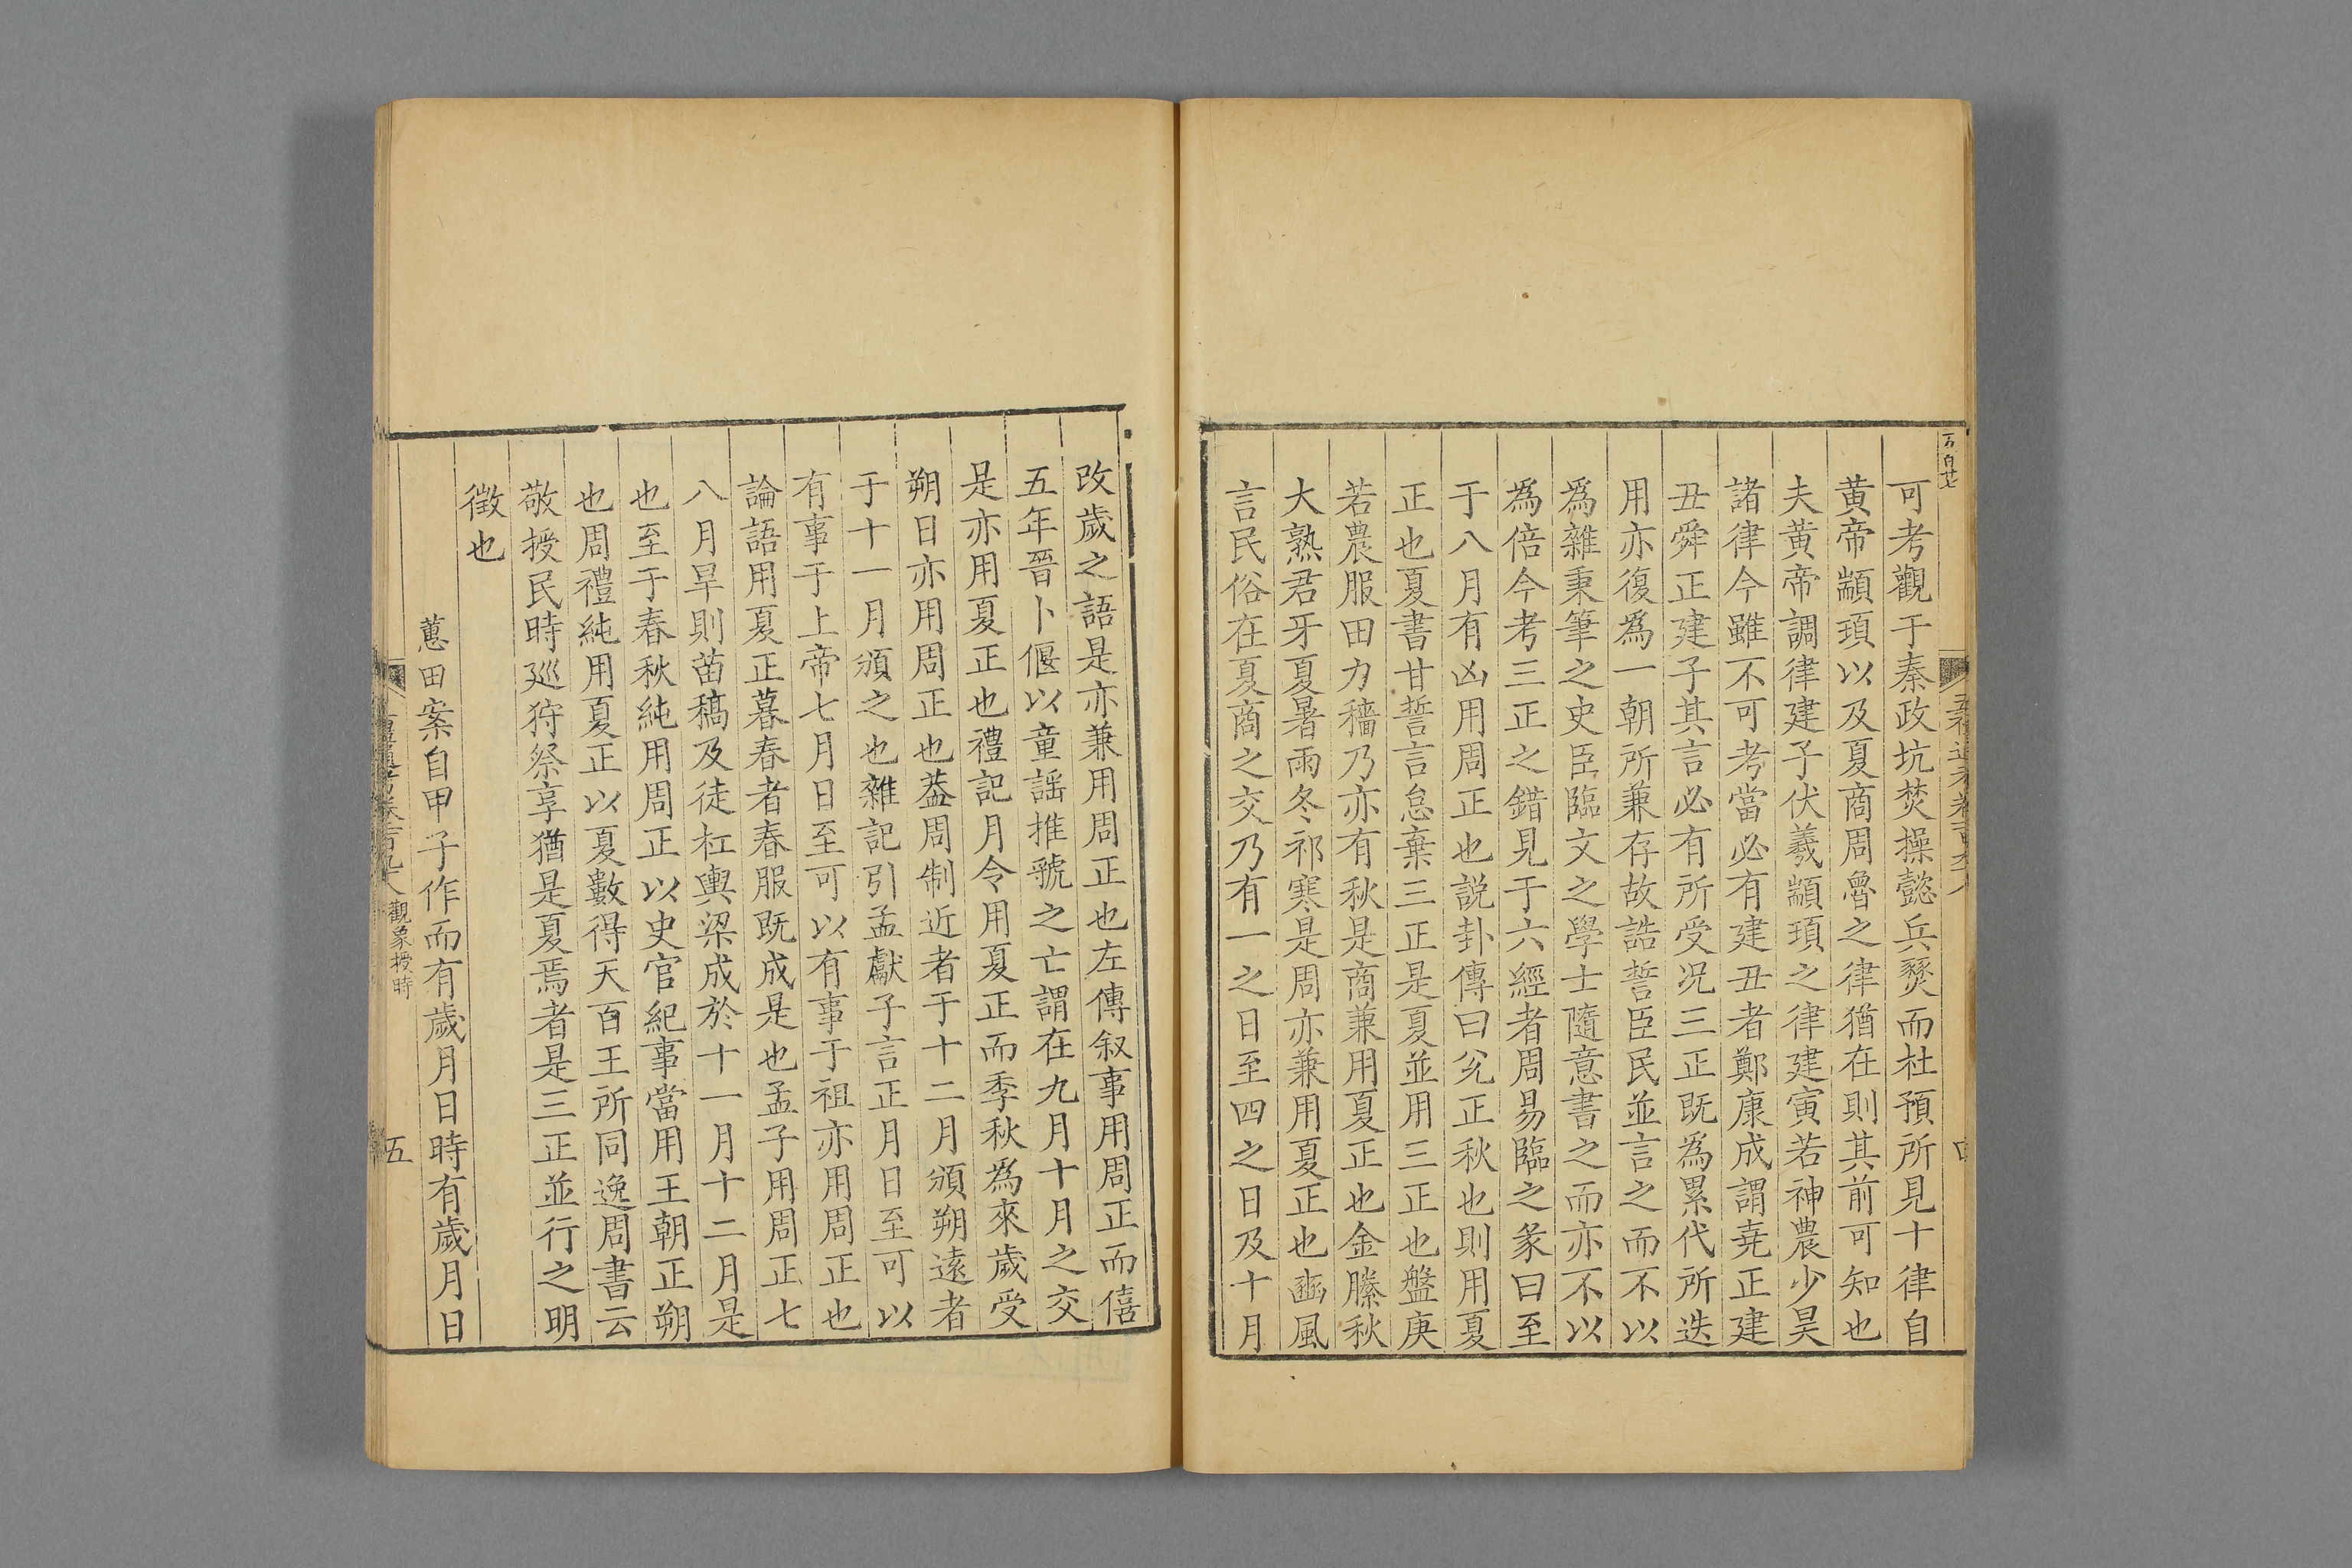 可考觀于秦政坑焚操懿兵燹而杜預所見十律自
黄帝顓頊以及夏商周魯之律猶在則其前可知也
夫黄帝調律建子伏羲顓頊之律建寅若神農少昊
諸律今雖不可考當必有建丑者鄭康成謂堯正建
丑舜正建子其言必有所受况三正既爲累代所迭
用亦復爲一朝所兼存故誥誓臣民並言之而不以
爲雜秉筆之史臣臨文之學士隨意書之而亦不以
爲倍今考三正之錯見于六經者周易臨之彖曰至
于八月有凶用周正也説卦傳曰兊正秋也則用夏
正也夏書甘誓言怠棄三正是夏並用三正也盤庚
若農服田力穡乃亦有秋是商兼用夏正也金縢秋
大熟君牙夏暑雨冬祁寒是周亦兼用夏正也豳風
言民俗在夏商之交乃有一之日至四之日及十月
改歲之語是亦兼用周正也左傳叙事用周正而僖
五年晉卜偃以童謡推虢之亡謂在九月十月之交
是亦用夏正也禮記月令用夏正而季秋爲來歲受
朔日亦用周正也葢周制近者于十二月頒朔遠者
于十一月頒之也雜記引孟獻子言正月日至可以
有事于上帝七月日至可以有事于祖亦用周正也
論語用夏正暮春者春服既成是也孟子用周正七
八月旱則苗稿及徒杠輿梁成於十一月十二月是
也至于春秋純用周正以史官紀事當用王朝正朔
也周禮純用夏正以夏數得天百王所同逸周書云
敬授民時廵狩祭享猶是夏焉者是三正並行之明
徴也
蕙田案自甲子作而有歲月日時有歲月日
觀象授時
五